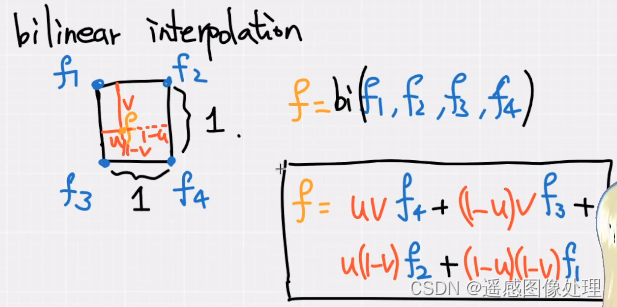 bilinear interpolation
f₁ f₂
v
f
u 1-u
1-v
1.
f₃ 1 f₄
f = bi(f₁, f₂, f₃, f₄)
f = uv f₄ + (1-u)v f₃ +
u(1-v) f₂ + (1-u)(1-v) f₁
CSDN @遥感图像处理